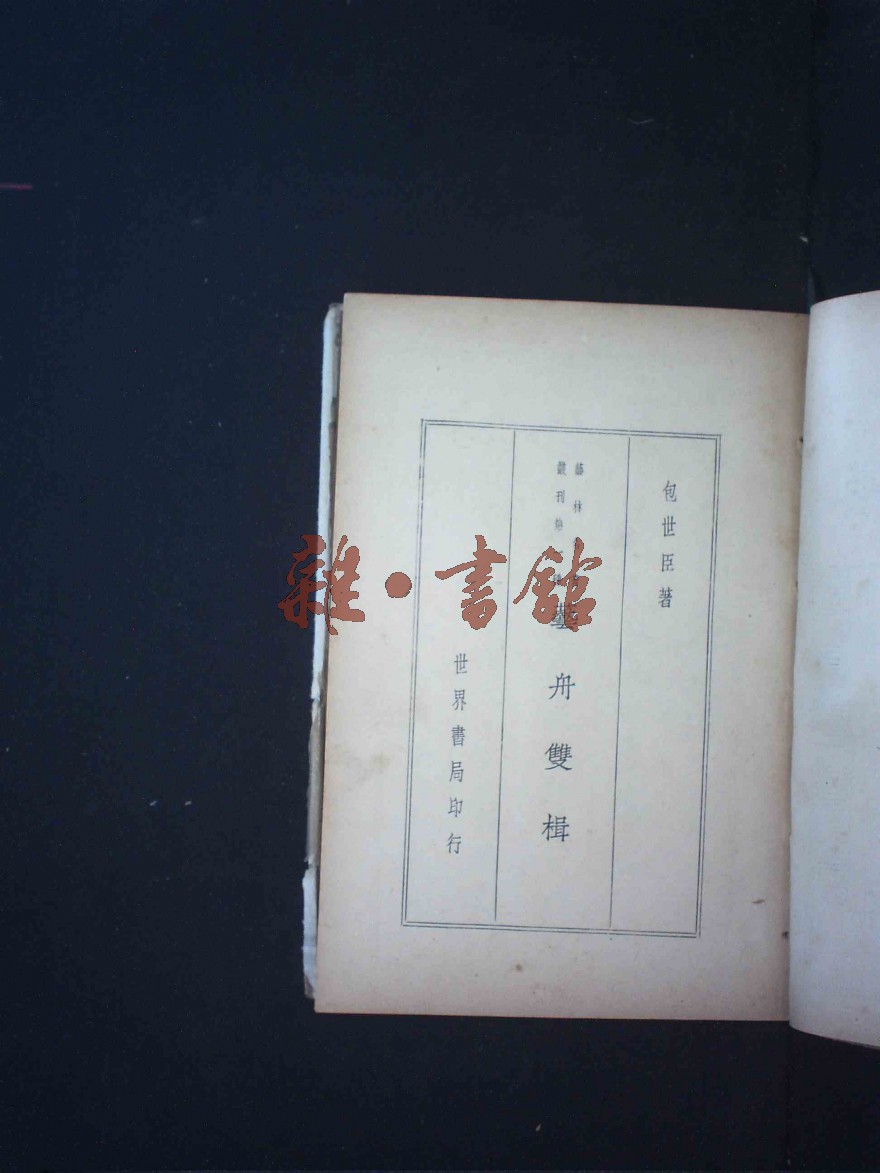 包世臣著
藝林
叢刊
藝舟雙楫
世界書局印行
雜·書館